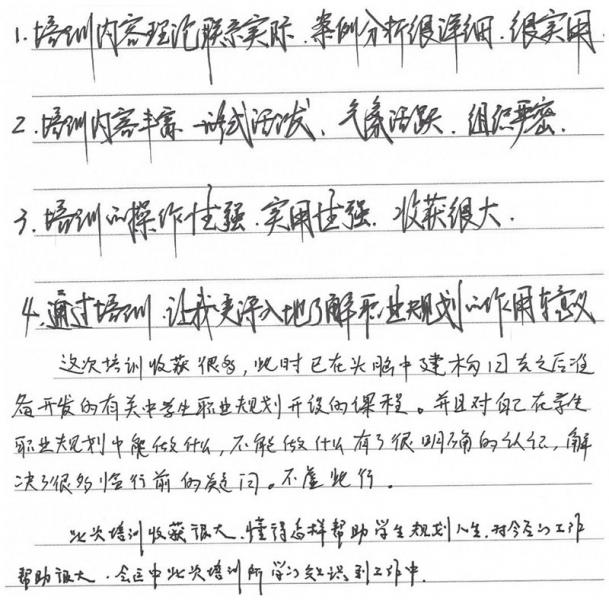 1.培训内容理论联系实际.案例分析很详细.很实用.
2.培训内容丰富 形式活泼、气氛活跃.组织严密.
3.培训的操作性强.实用性强.收获很大.
4.通过培训 让我更深入地了解职业规划的作用与意义
这次培训收获很多,此时已在头脑中建构回去之后准
备开发的有关中学生职业规划开设的课程。并且对自己在学生
职业规划中能做什么,不能做什么有了很明确的认识,解
决了很多临行前的疑问。不虚此行。
此次培训收获很大.懂得怎样帮助学生规划人生.对今后的工作
帮助很大.会运用此次培训所学的知识到工作中.